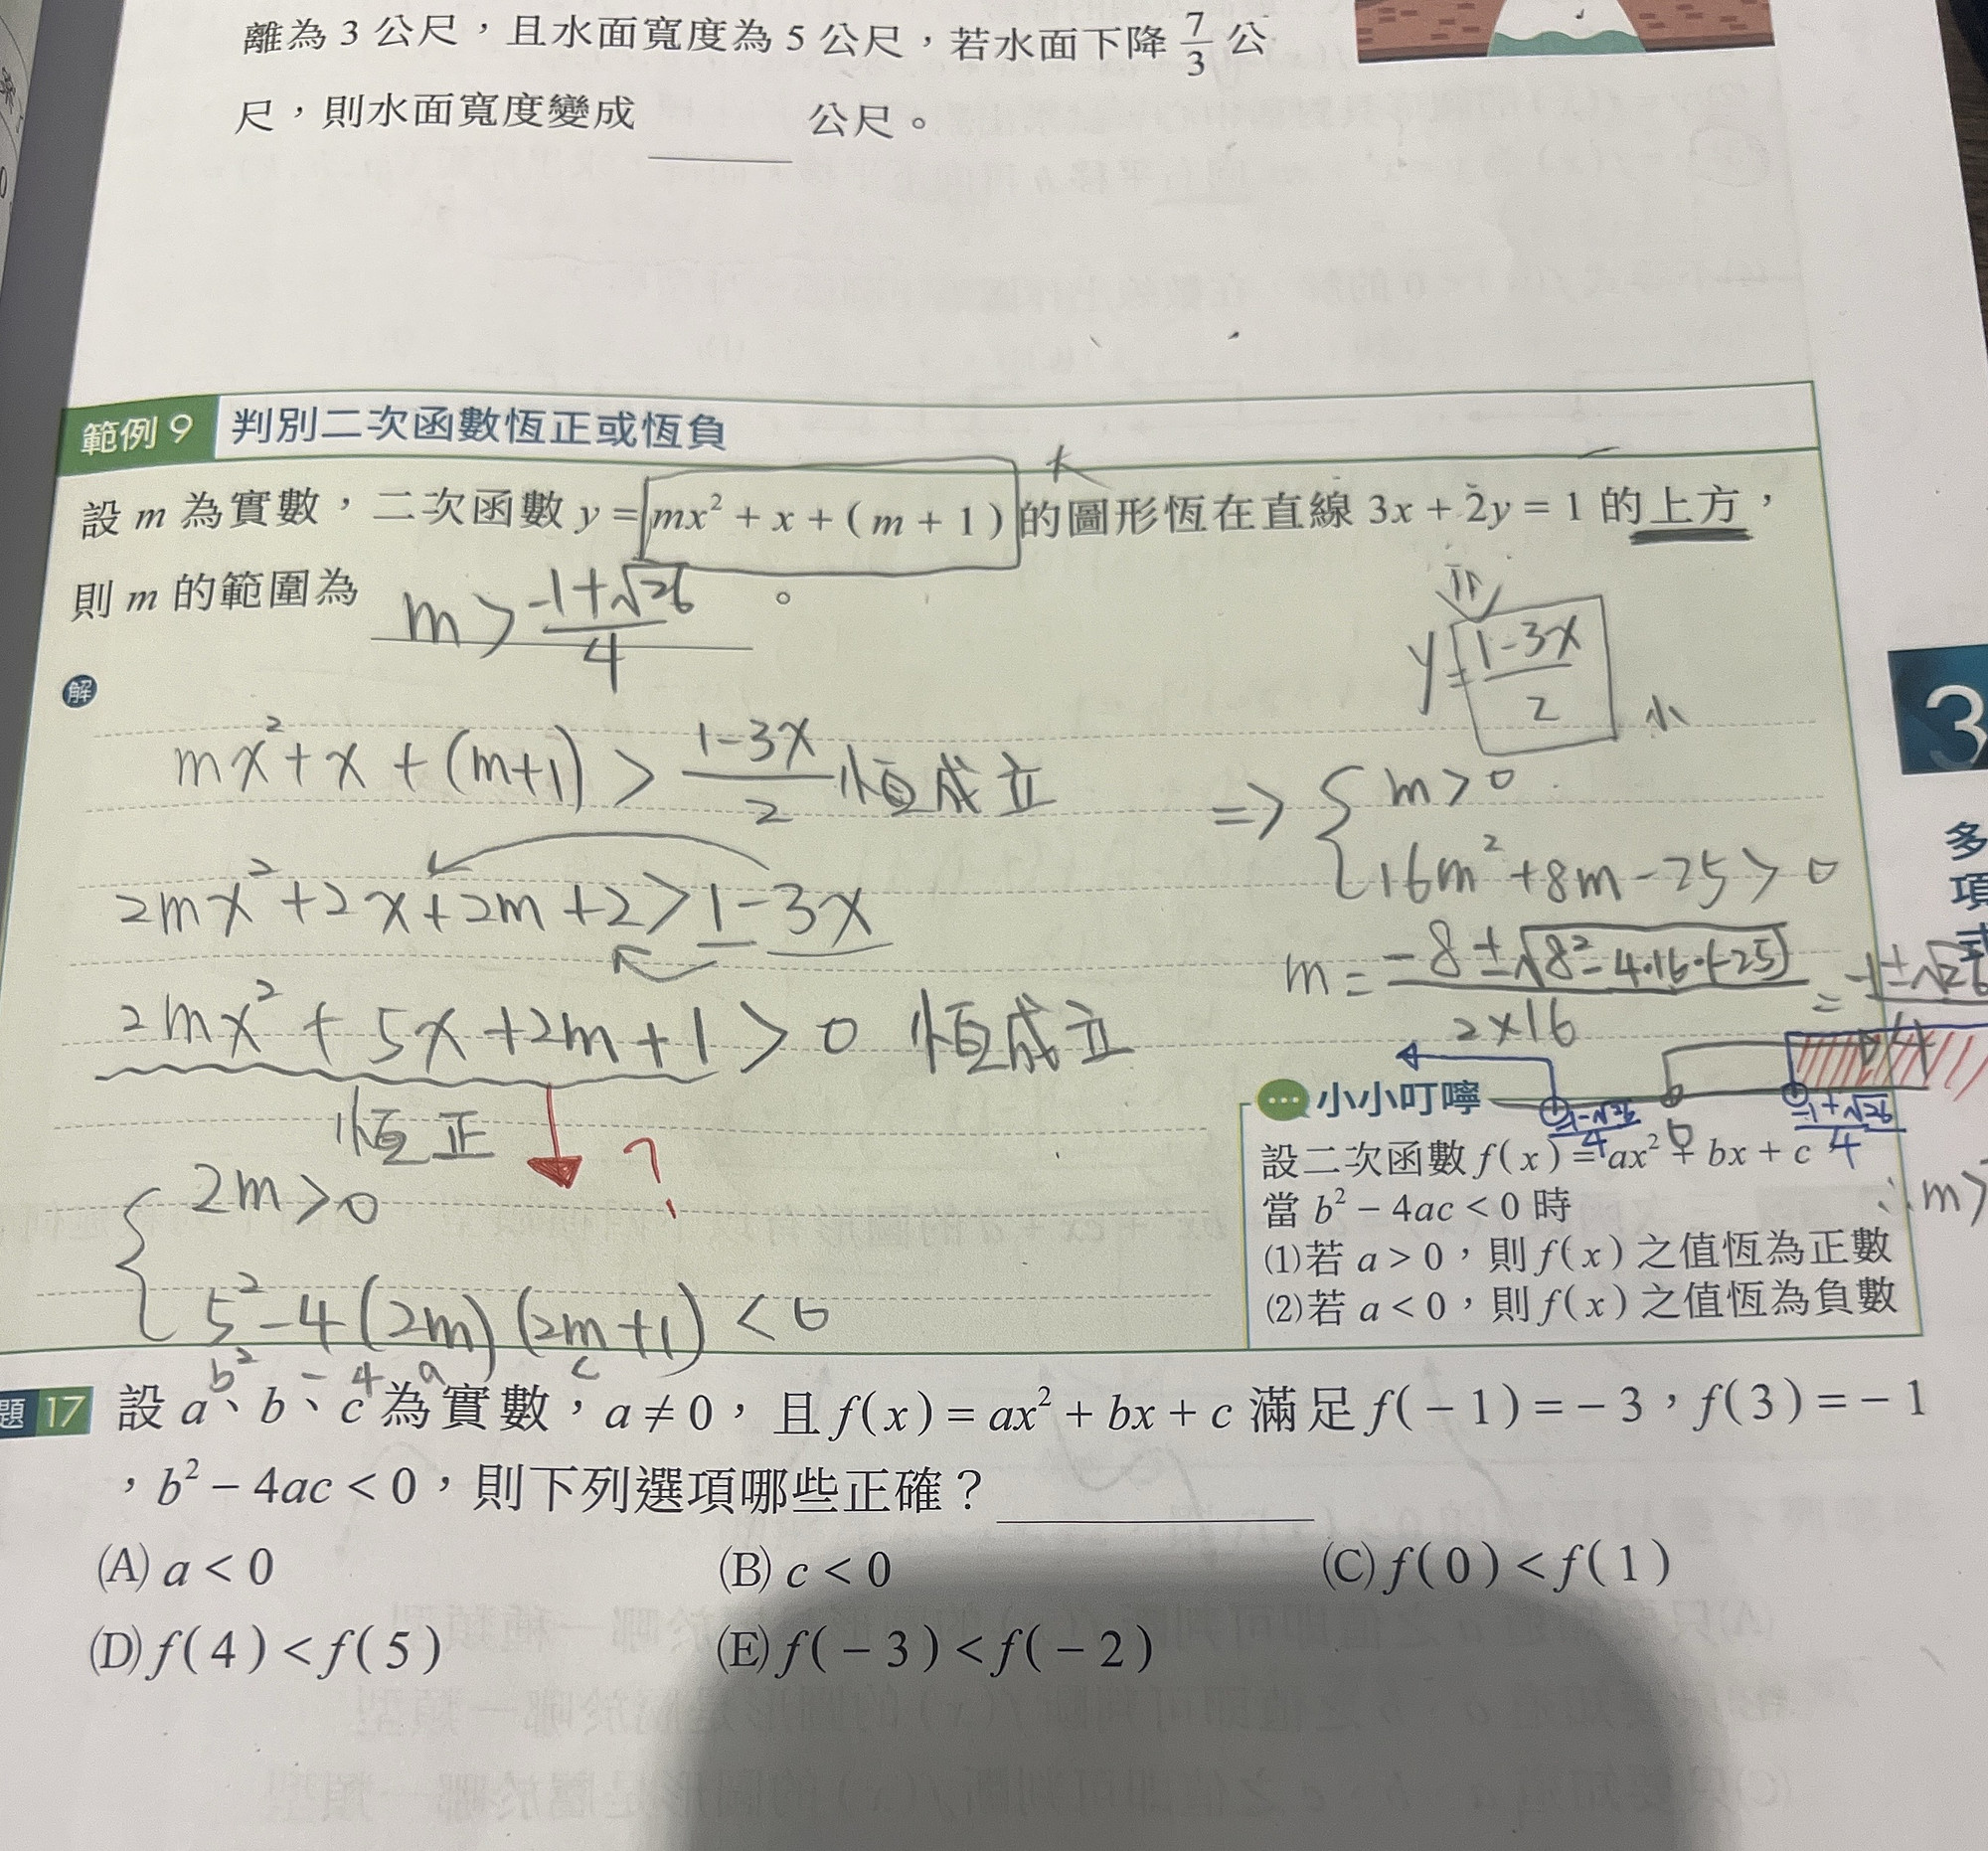 離為 3 公尺，且水面寬度為 5 公尺，若水面下降 7/3 公
尺，則水面寬度變成______公尺。
範例 9 判別二次函數恆正或恆負
設 m 為實數，二次函數 y = mx² + x + ( m + 1 ) 的圖形恆在直線 3x + 2y = 1 的上方，
大
則 m 的範圍為 m > (-1+√26)/4 。
y = (1-3x)/2
小
解
mx² + x + (m+1) > (1-3x)/2 恆成立
2mx² + 2x + 2m + 2 > 1 - 3x
2mx² + 5x + 2m + 1 > 0 恆成立
恆正
?
{ 2m > 0
5² - 4(2m)(2m+1) < 0
b² - 4 a c
=> { m > 0
16m² + 8m - 25 > 0
m = (-8 ± √(8² - 4·16·(-25)))/(2×16) = (-1±√26)/4
(-1-√26)/4 0 (-1+√26)/4
∴ m >
小小叮嚀
設二次函數 f( x ) = ax² + bx + c
當 b² − 4ac < 0 時
(1)若 a > 0，則 f( x ) 之值恆為正數
(2)若 a < 0，則 f( x ) 之值恆為負數
3
多項式
題 17 設 a、b、c 為實數，a ≠ 0，且 f( x ) = ax² + bx + c 滿足 f( − 1 ) = − 3，f( 3 ) = − 1
，b² − 4ac < 0，則下列選項哪些正確？______
(A) a < 0 (B) c < 0 (C) f( 0 ) < f( 1 )
(D) f( 4 ) < f( 5 ) (E) f( − 3 ) < f( − 2 )